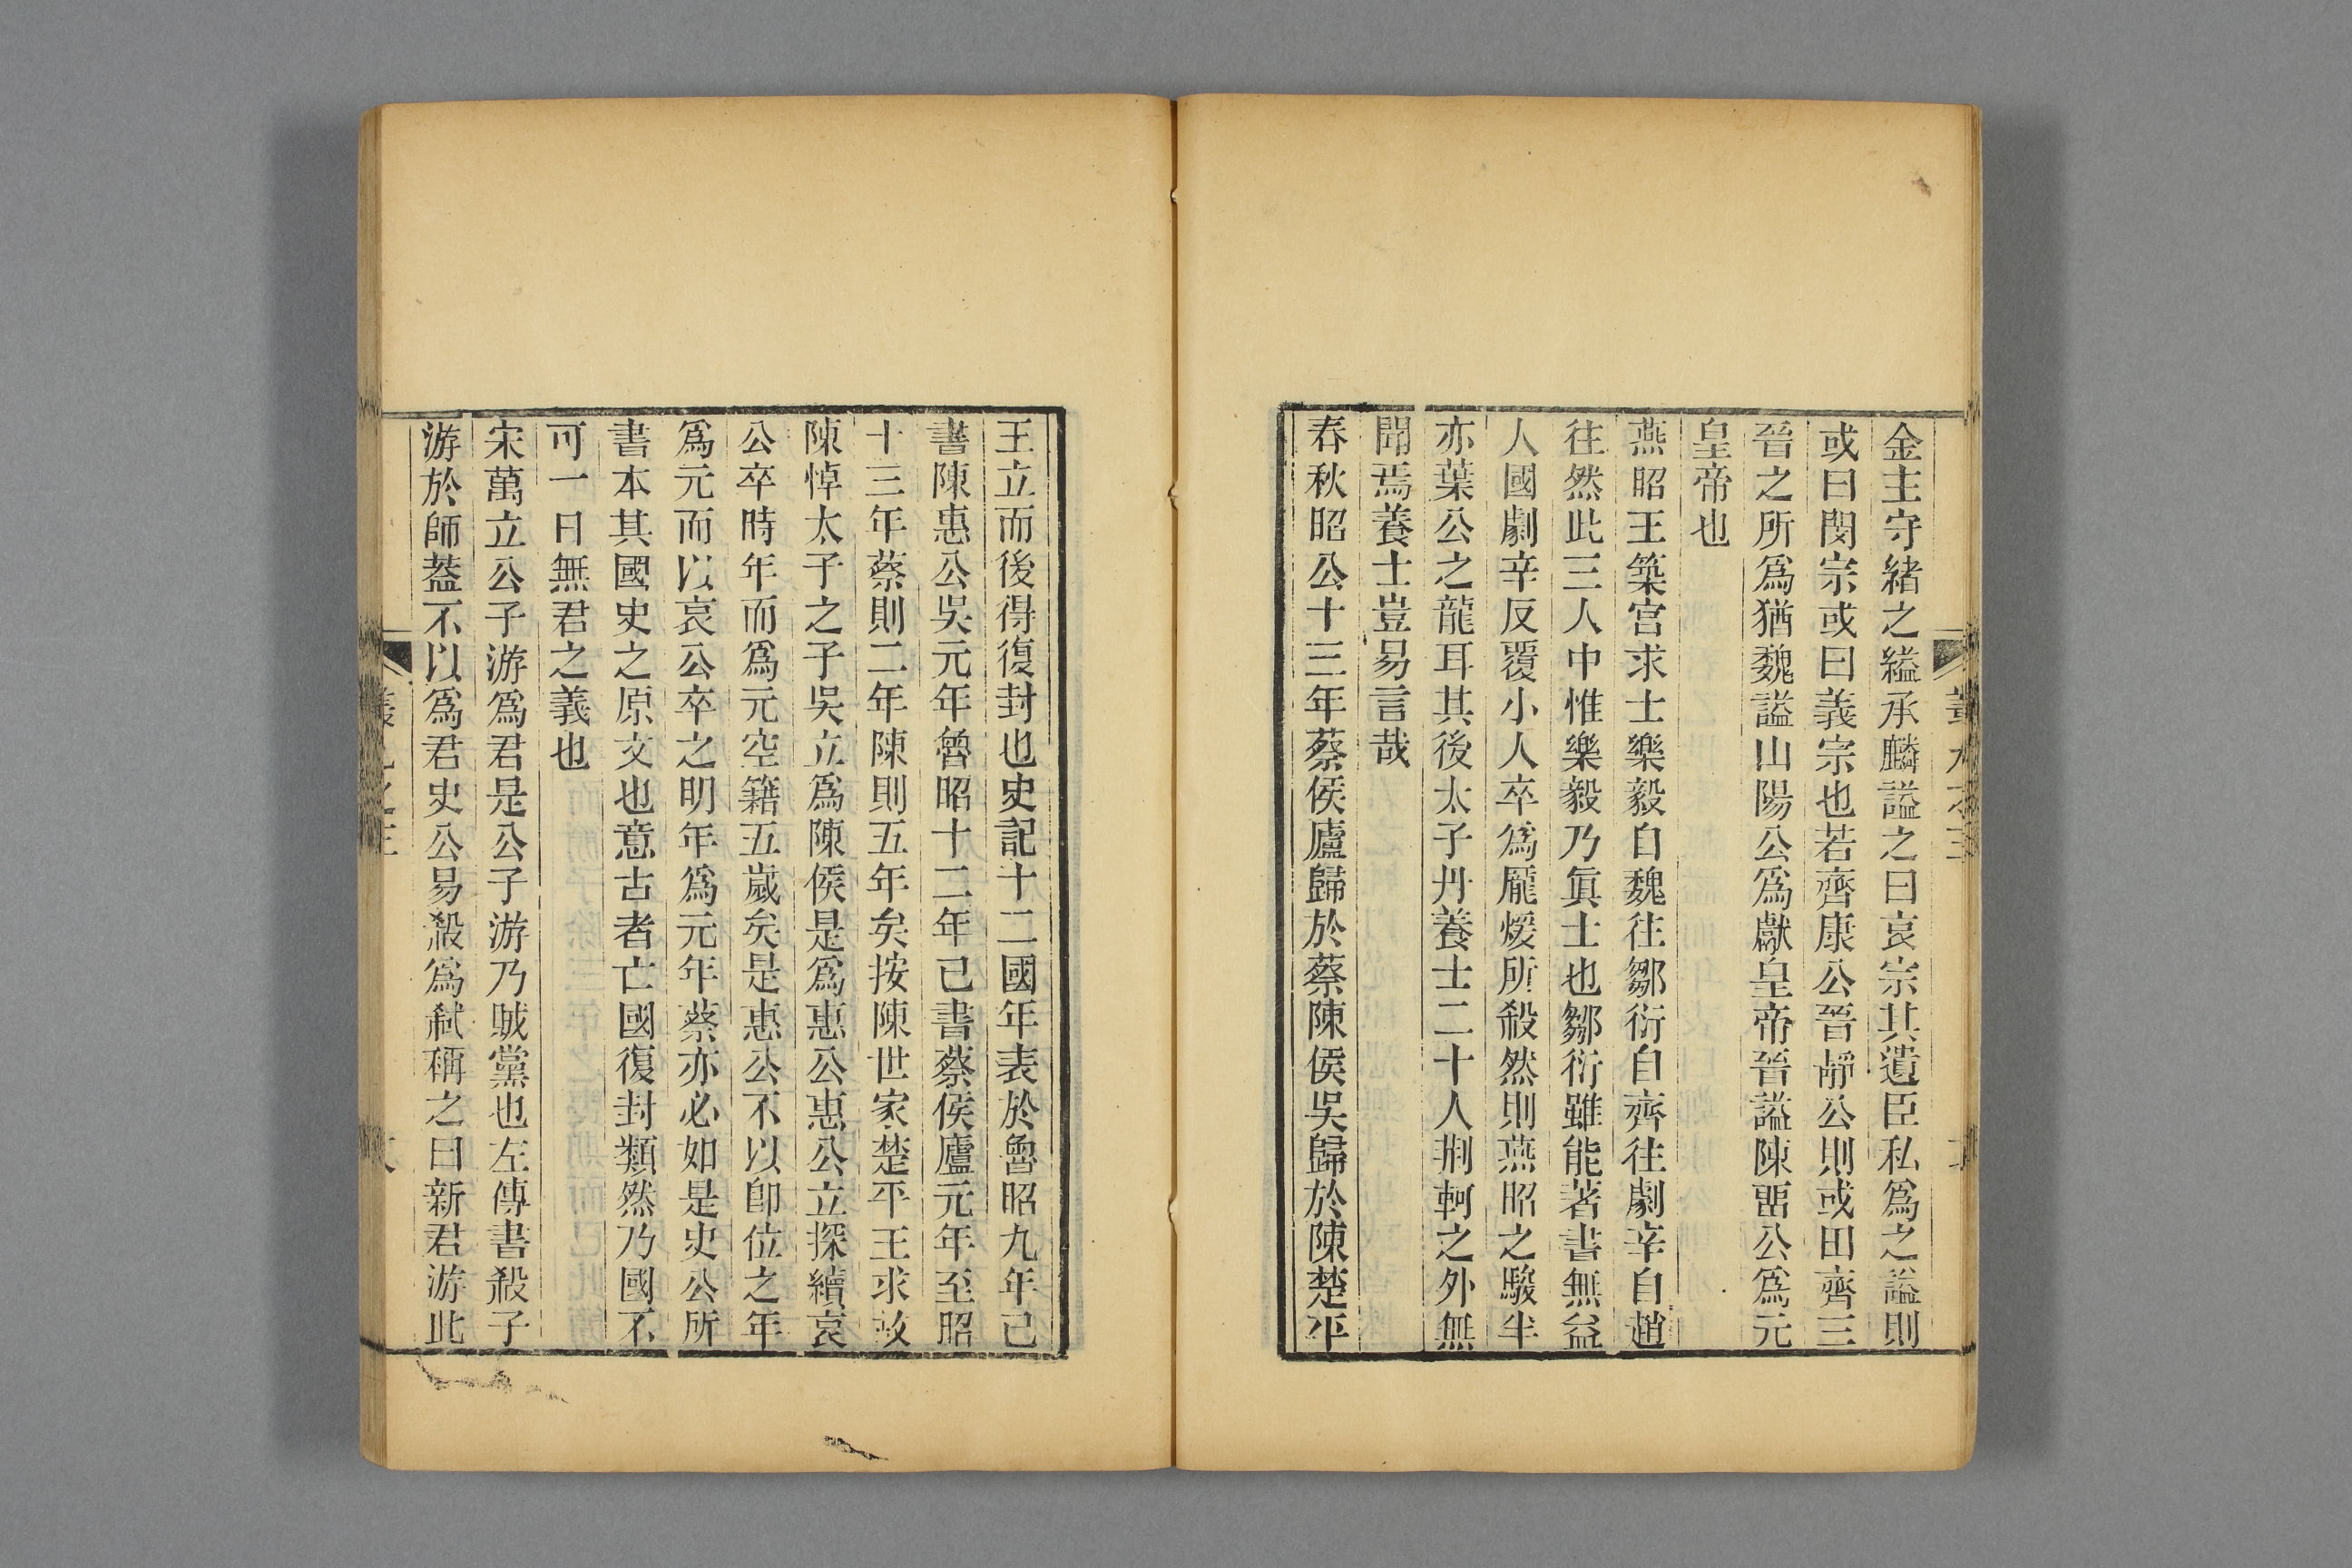 金主守緒之縊承麟謚之曰哀宗其遺臣私爲之謚則
或曰閔宗或曰義宗也若齊康公晉靜公則或田齊三
晉之所爲猶魏謚山陽公爲獻皇帝晉謚陳畱公爲元
皇帝也
燕昭王築宮求士樂毅自魏往鄒衍自齊往劇辛自趙
往然此三人中惟樂毅乃眞士也鄒衍雖能著書無益
人國劇辛反覆小人卒爲龐煖所殺然則燕昭之駿半
亦葉公之龍耳其後太子丹養士二十人荆軻之外無
聞焉養士豈易言哉
春秋昭公十三年蔡侯廬歸於蔡陳侯吳歸於陳楚平
王立而後得復封也史記十二國年表於魯昭九年已
書陳惠公吳元年魯昭十二年已書蔡侯廬元年至昭
十三年蔡則二年陳則五年矣按陳世家楚平王求故
陳悼太子之子吳立爲陳侯是爲惠公惠公立探續哀
公卒時年而爲元空籍五歲矣是惠公不以卽位之年
爲元而以哀公卒之明年爲元年蔡亦必如是史公所
書本其國史之原文也意古者亡國復封類然乃國不
可一日無君之義也
宋萬立公子游爲君是公子游乃賊黨也左傳書殺子
游於師葢不以爲君史公易殺爲弒稱之曰新君游此